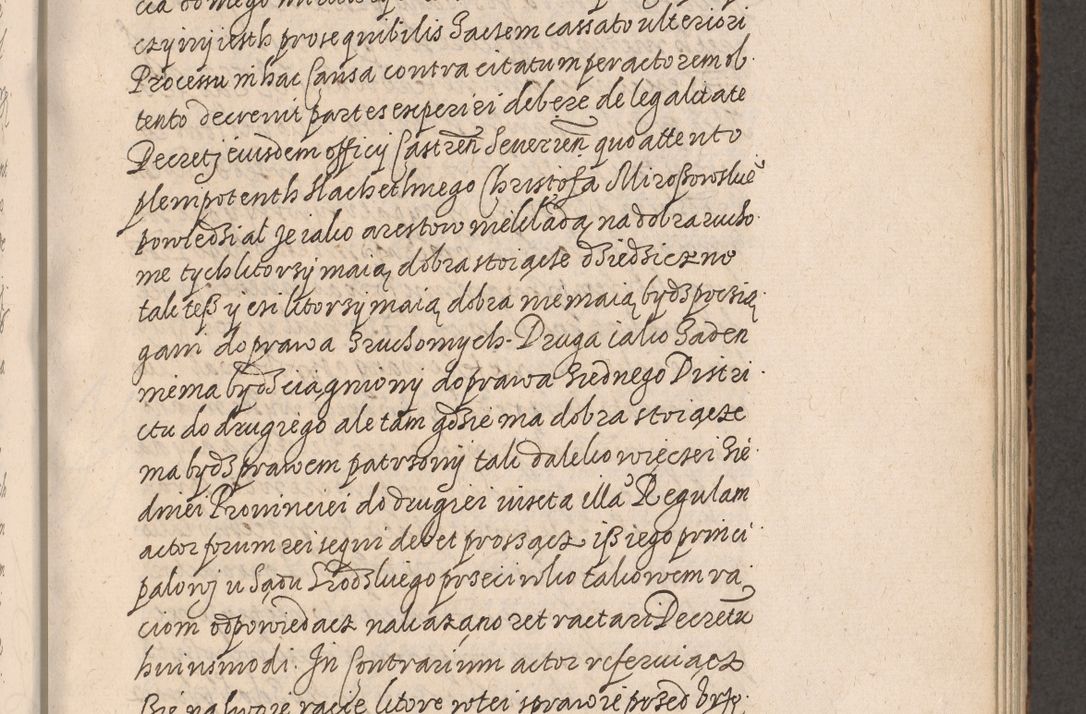 czynÿ iesth prosequibilis Zaczem cassato ulteriori
Processu in hac Causa contra citatum per actorem ob
tento decrevit partes experiri debere de legalitate
Decretj eiusdem officÿ Castreñ Severień quo attento
plenipotenth slachethnego Christofa Miroszowskie°
powiedział Je iako arestow nie kładą na dobra rucho
me tych ktorzy maią dobra stoiącze dziedziczno
tak też y czi ktorzy maią dobra nie maią bydź pocsią
gani do prawa z ruchomych. Druga iako żaden
nie ma bydź ciągniony do prawa z iednego Distri
ctu do drugiego ale tam gdzie ma dobra stoiącze
ma bydź prawem patrzony tak daleko więczei z ie
dnei Provinciei do drugiei iuxta illã Regulam
actor forum rei sequi debet proszącz isz iego princi
palowj u Sądu Grodzkiego przeciwko takowem ra
ciom odpowiedacz nakazano retractari Decretũ
huiusmodi. In Contrarium actor referuiącz
sie na swoie racie ktore w tei sprawie przed